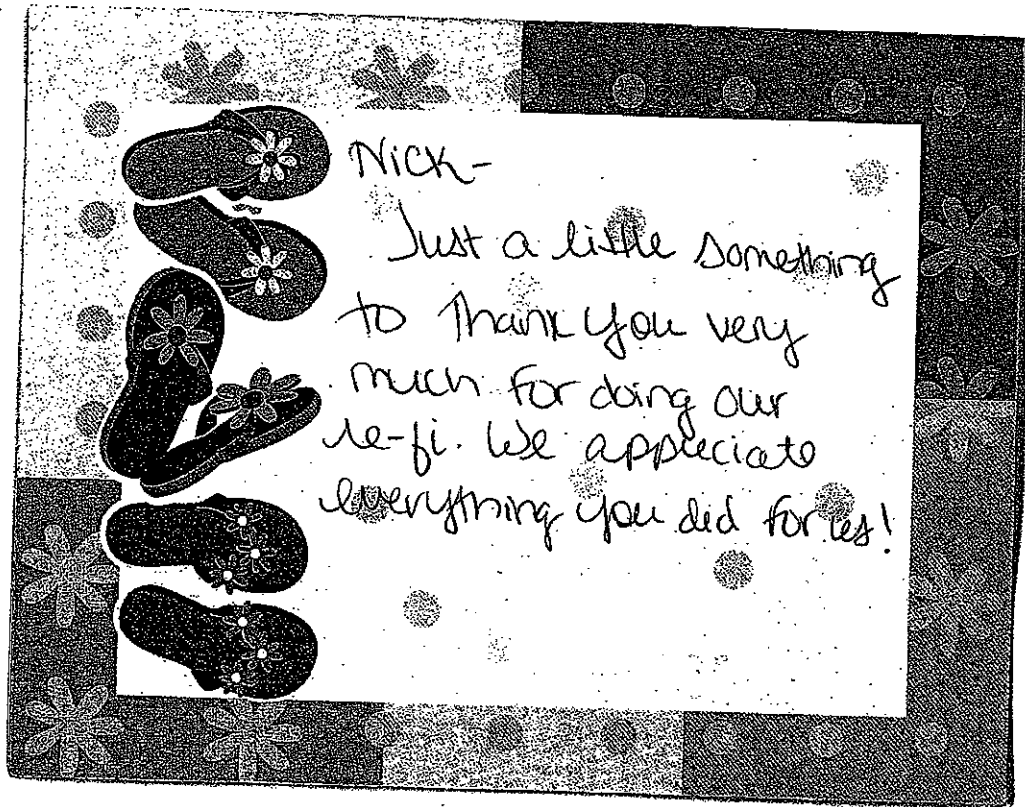 Nick-
Just a little something
to Thank you very
much for doing our
re-fi. We appreciate
everything you did for us!